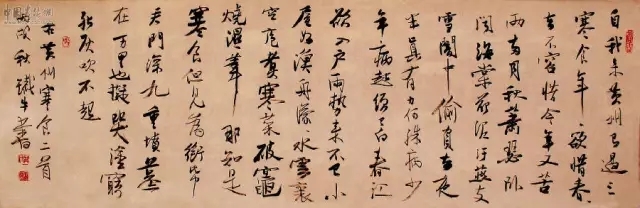 自我来黄州已过三
寒食年年欲惜春春
去不容惜今年又苦
雨两月秋萧瑟卧
闻海棠花泥污燕支
雪闇中偷负去夜
半真有力何殊病少
年病起须已白春江
欲入户雨势来不已小
屋如渔舟濛濛水云里
空庖煮寒菜破灶
烧湿苇那知是
寒食但见乌衔纸
君门深九重坟墓
在万里也拟哭涂穷
死灰吹不起
黄州寒食二首
丙戌秋